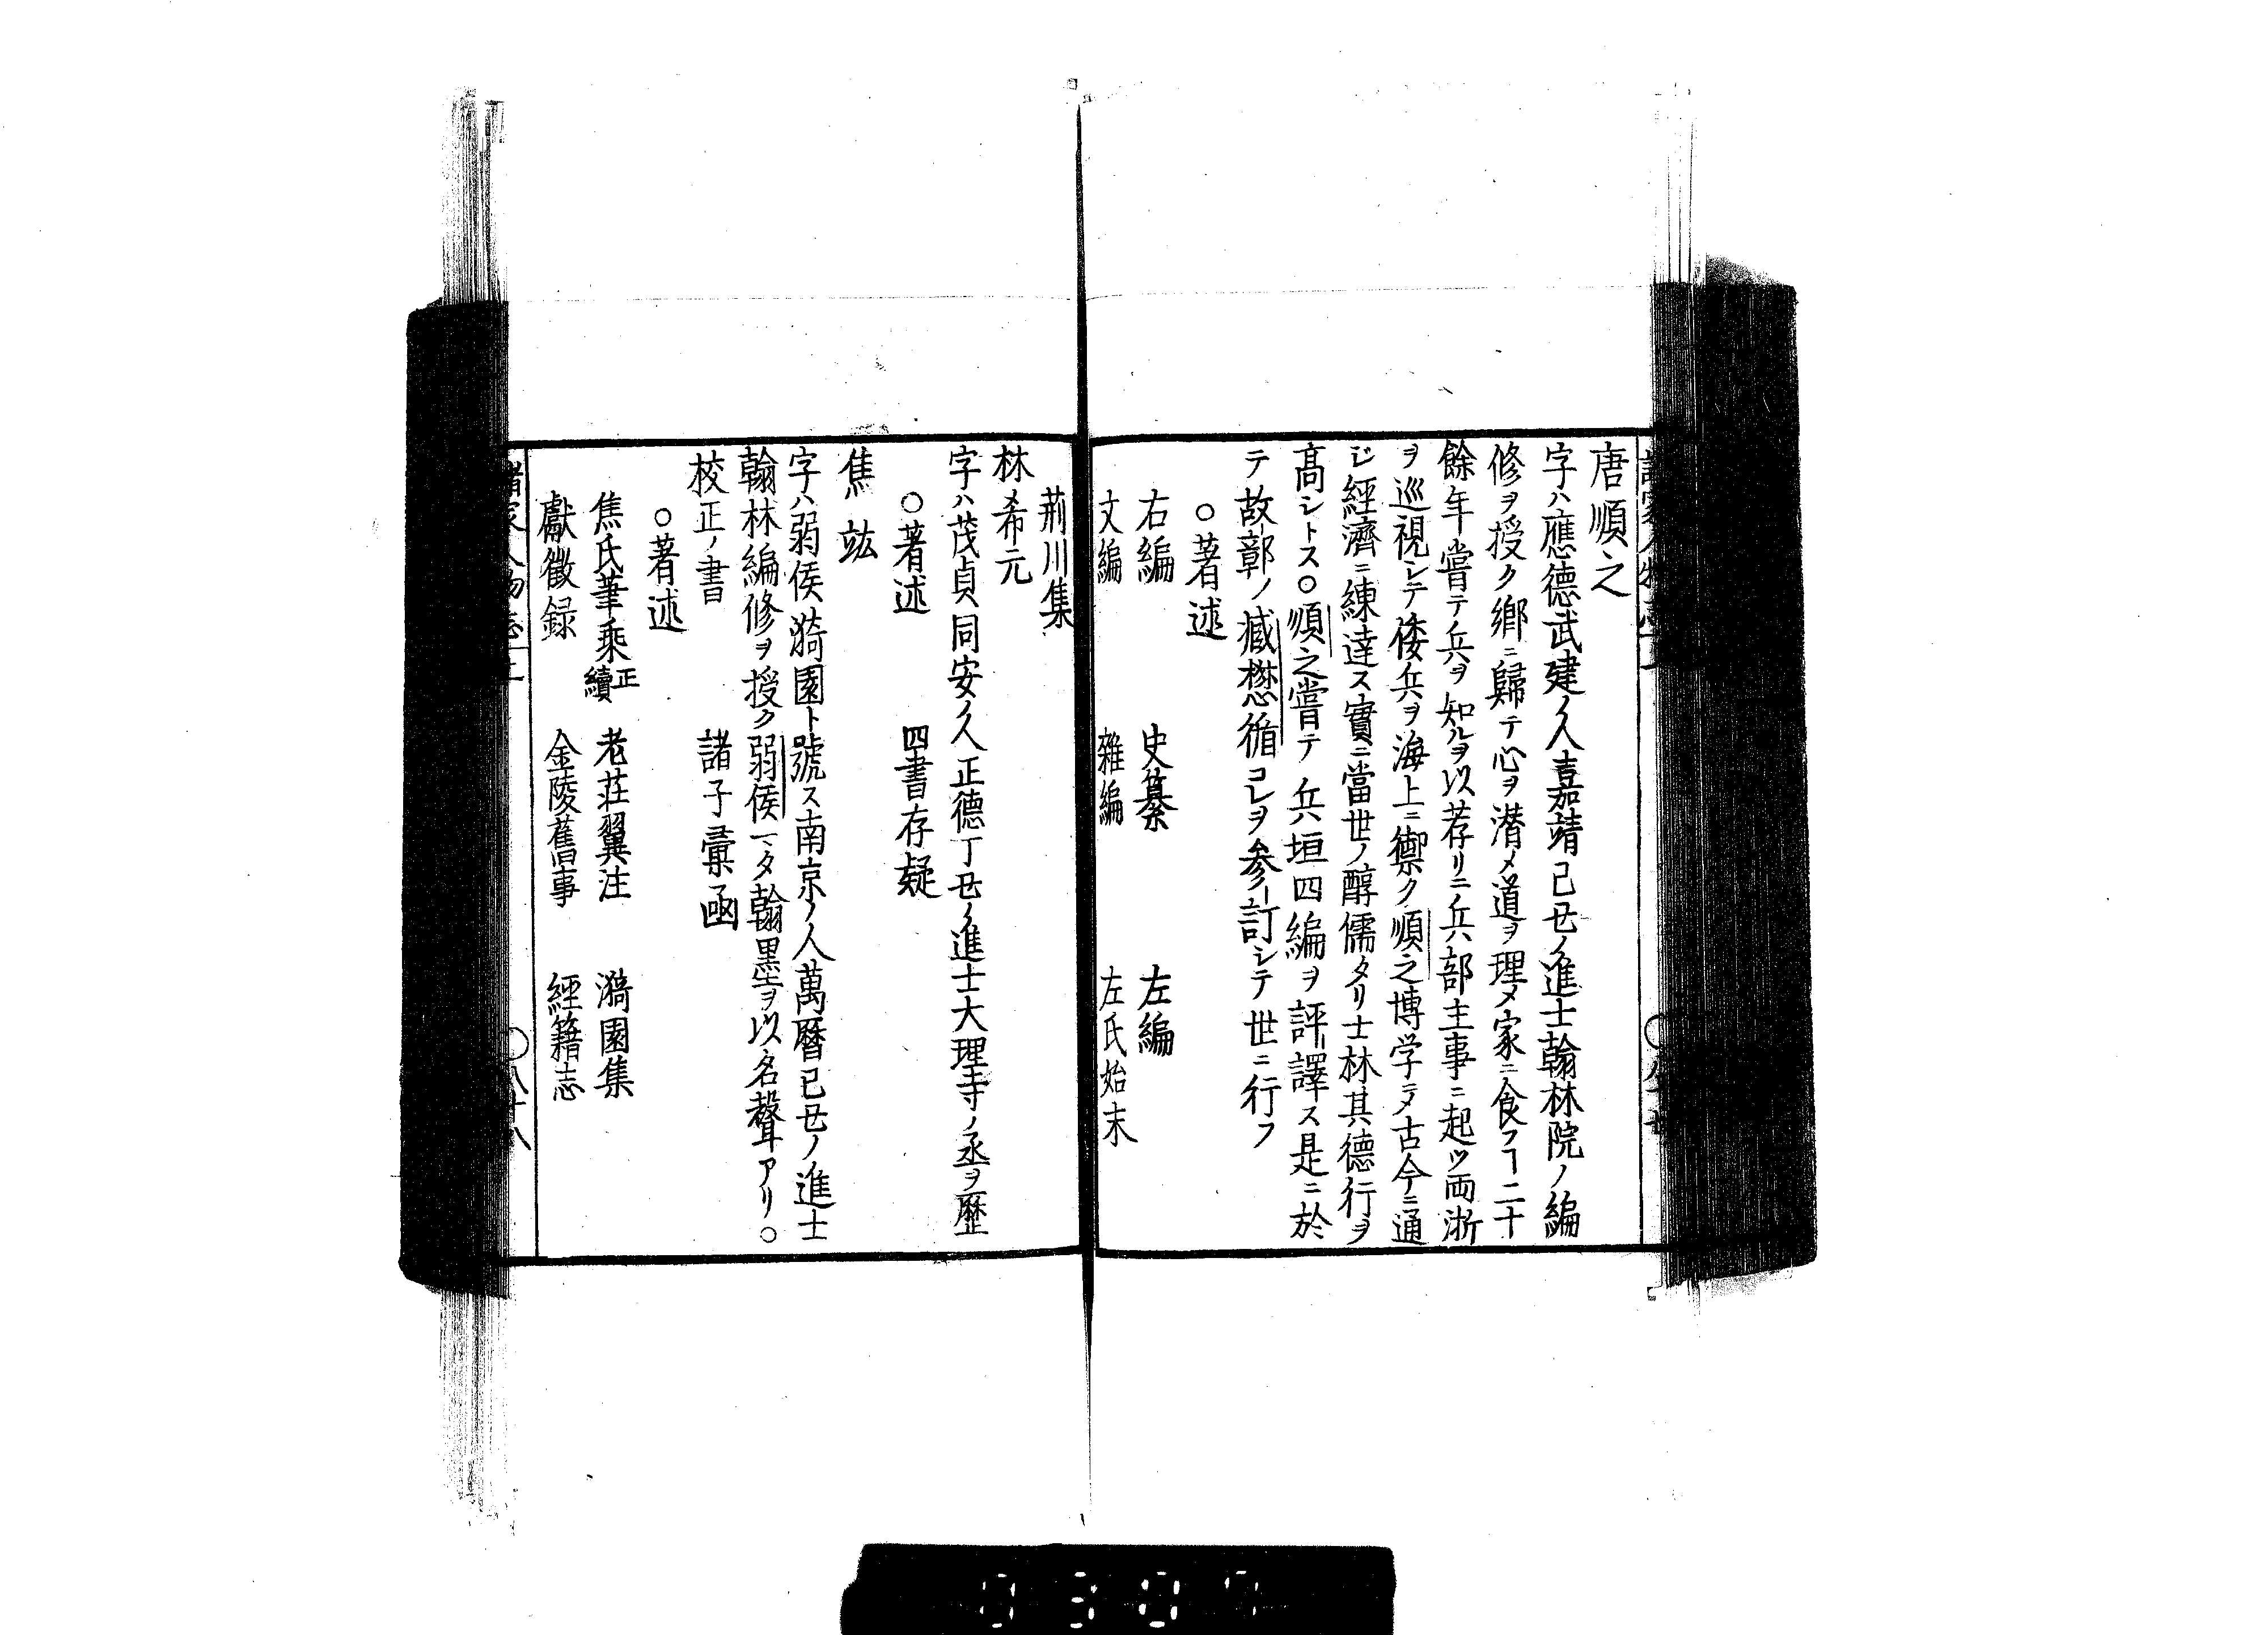 唐順之
字ハ應德武建ノ人嘉靖己丑ノ進士翰林院ノ編
修ヲ授ク鄉ニ歸テ心ヲ潜メ道ヲ理メ家ニ食フヿ二十
餘年嘗テ兵ヲ知ルヲ以荐リニ兵部主事ニ起ツ両浙
ヲ巡視シテ倭兵ヲ海上ニ禦ク順之博学ニメ古今ニ通
ジ經濟ニ練達ス實ニ當世ノ醇儒タリ士林其德行ヲ
髙シトス○順之嘗テ兵垣四編ヲ評譯ス是ニ於
テ故鄣ノ臧懋循コレヲ参訂シテ世ニ行フ
○著述
右編 史纂 左編
文編 雜編 左氏始末
荊川集
林希元
字ハ茂貞同安ノ人正德丁丑ノ進士大理寺ノ丞ヲ歷
○著述 四書存疑
焦竑
字ハ弱侯漪園ト號ス南京ノ人萬曆已丑ノ進士
翰林編修ヲ授ク弱侯マタ翰墨ヲ以名聲アリ○
校正ノ書 諸子彙函
○著述
焦氏筆乘正續 老莊翼注 漪園集
獻徵録 金陵舊事 經籍志
○八十八